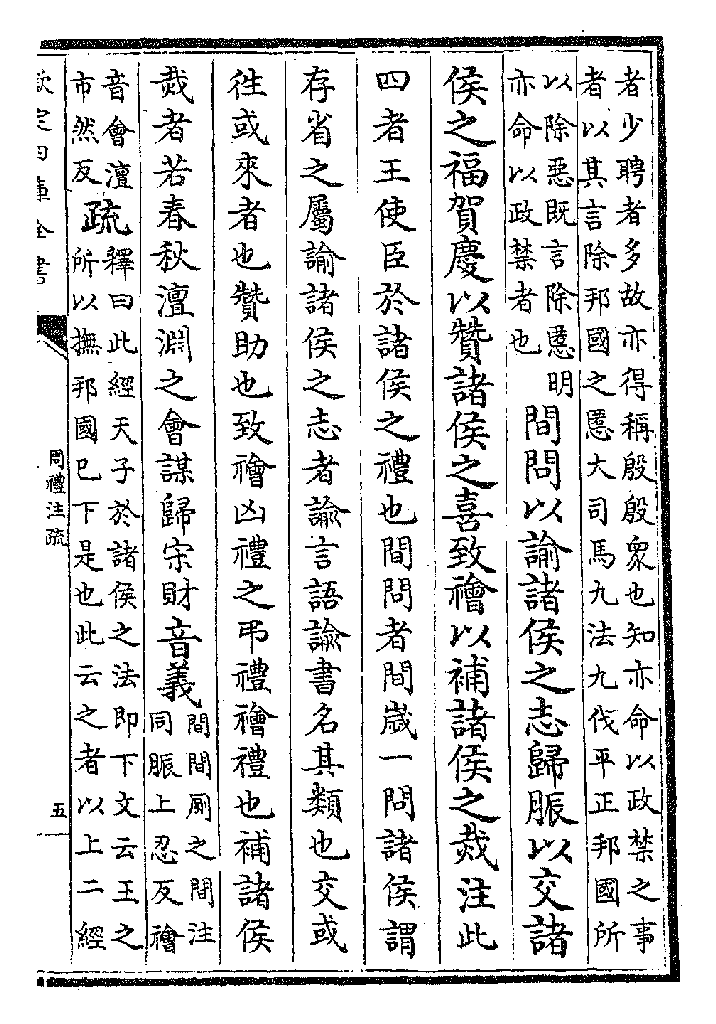 者少聘者多故亦得稱殷殷衆也知亦命以政禁之事
者以其言除邦國之慝大司馬九法九伐平正邦國所
以除惡既言除慝明
亦命以政禁者也
間問以諭諸侯之志歸脤以交諸
侯之福賀慶以贊諸侯之喜致禬以補諸侯之烖注此
四者王使臣於諸侯之禮也間問者間歲一問諸侯謂
存省之屬諭諸侯之志者諭言語諭書名其類也交或
往或來者也贊助也致禬凶禮之弔禮禬禮也補諸侯
烖者若春秋澶淵之會謀歸宋財音義
間間厠之間注
同脤上忍反禬
音會澶
市然反
疏
釋曰此經天子於諸侯之法即下文云王之
所以撫邦國已下是也此云之者以上二經
欽定四庫全書
周禮注疏
五